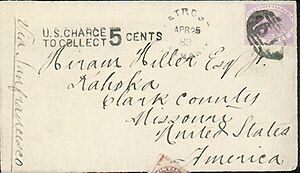 Via Sanfrancisco
U.S. CHARGE
TO COLLECT 5 CENTS
APR 25
83
Hiram Hiller Esq Jr.
Kahoka
Clark County
Missouri
United States
America